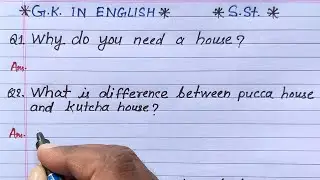 *G.K. IN ENGLISH* *S.St.*
Q1. Why do you need a house?
Ans.
Q2. What is difference between pucca house
and kutcha house?
Ans.